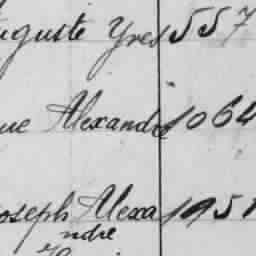 uguste Yves 557
ue Alexandre 1064
oseph Alexa 1951
ndre